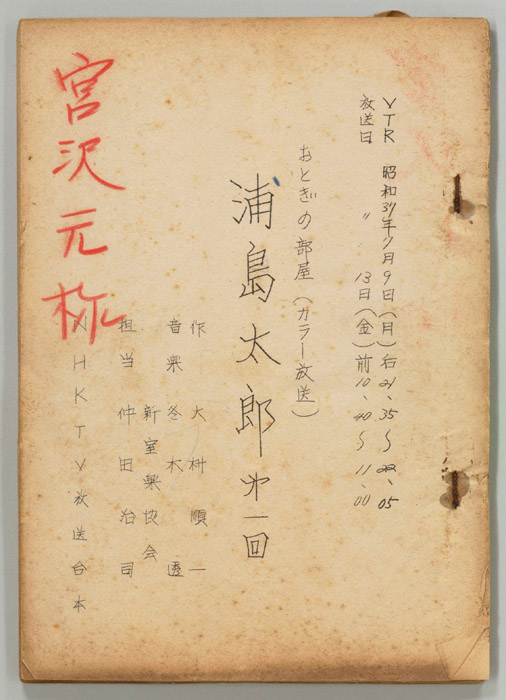 VTR 昭和37年7月9日(月)后21、35〜22、05
放送日 〃 13日(金)前10、40〜11、00
おとぎの部屋(カラー放送)
浦島太郎 第一回
作 大枡順一
音楽 冬木透
新室楽協会
担当 仲田治司
NHKTV放送台本
宮沢元